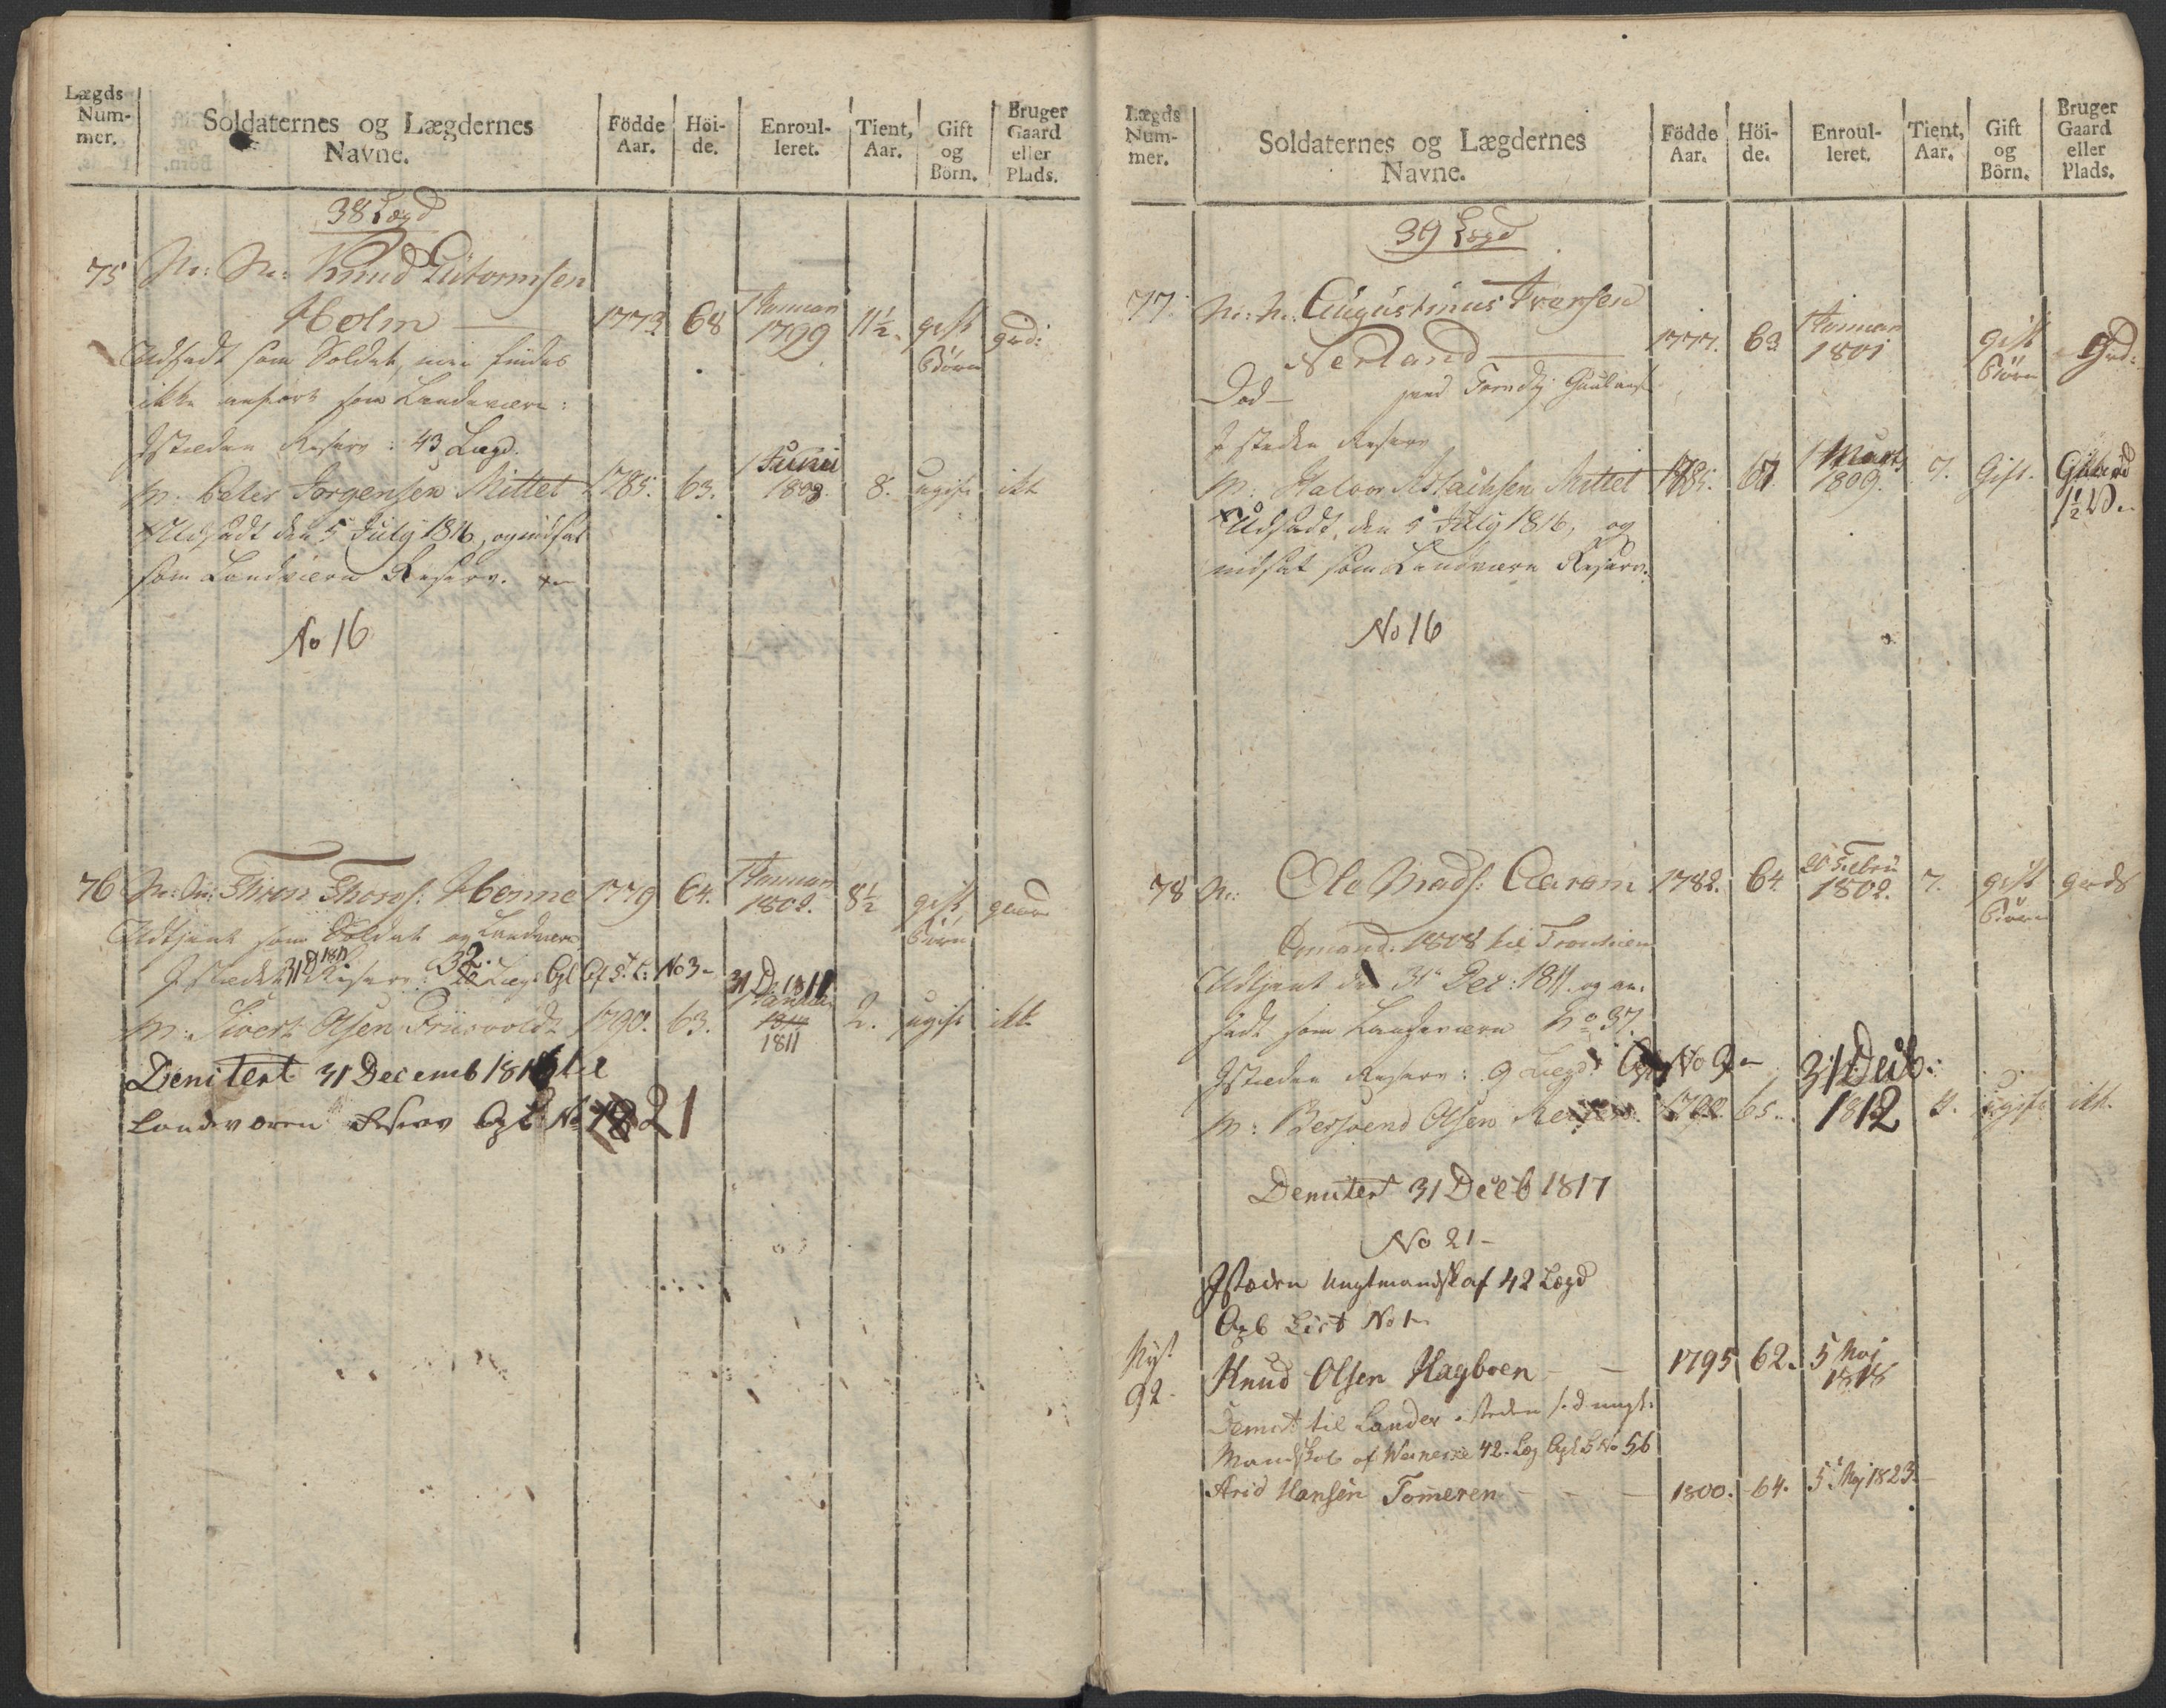 Lægds Num- mer. Soldaternes og Lægdernes Navne. Födde Aar. Höi- de. Enroul- leret. Tient, Aar. Gift og Börn. Bruger Gaard eller Plads.
38 Lægd
75 No: Na: Knud Guttormsen
Holm 1773 68 1 Januar 1799 11½. gift Börn grd:
Udsadt som Soldat, men findes
ikke anfört som Landeværn:
Istæden Reserv: 43 Lægd.
N. Peter Jörgensen Mittet 1785. 63. 1 Junii 1808. 8. ugift ikke
Udsadt den 5 July 1816, og indsat
som Landværn Reserv.
No 16
76 Thron Thorsf: Henne 1779 64. 1 Januar 1802. 8½ gift Börn gaard
Udtjent som Soldat og Landværn
Istædet 31 D 1811 Reserv: 32 Lægd Agl
No 3 -
N: Sivert Olsen Friisvoldt 1790. 63. 31 D 1811 1811 2. ugift ikke
Demitert 31 Decemb 1816 til
Landværn Reserv No 21
Lægds Num- mer. Soldaternes og Lægdernes Navne. Födde Aar. Höi- de. Enroul- leret. Tient, Aar. Gift og Börn. Bruger Gaard eller Plads.
39 Lægd
77. No: Na. Augustinus Iversen
Nerland 1777. 63 1 Januar 1801 gift Börn Grd:
Död
I steden Reserv
N: Halvor Aslachsen Mittet 1785. 67 1 Marts 1809. 7. Gift. Gaard 1½ W.
Udsadt, den 5 July 1816, og
indsat som Landværn Reserv.
No 16
78 N: Ole Mads: Aaram 1782. 64. 20 Febru 1802. 7. gift Börn gaard
1808 til Tronhiem
Udtjent den 31 Dec: 1811. og an-
sadt som Landeværn No 37.
Istæden Reserv: 9 Lægd No 9 -
N: Bersvend Olsen 1792 65.. 31 Decb: 1812 4. ugift ikke
Demitert 31 Decb 1817
No 21 -
Istæden Ungtmandsk af 42 Lægd
Agb List No 1
Nyt 92. Knud Olsen Hagboen - - 1795 62. 5 Maj 1818
Demit til Landev isteden ungt:
Mandskab af Læg No 56
Arid Hansen Tomeren - - - 1800. 64. 5 Maj 1823